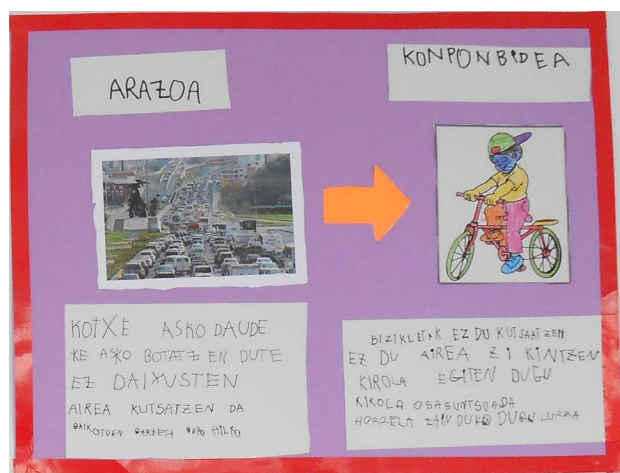 ARAZOA
KONPONBIDEA
KOTXE ASKO DAUDE
KE ASKO BOTATZEN DUTE
EZ DAIXUSTEN
AIREA KUTSATZEN DA
HILKO
BIZIKLETAK EZ DU KUTSATZEN
EZ DU AIREA ZIKINTZEN
KIROLA EGITEN DUGU
KIROLA OSASUNTSUADA
HORRELA ZAINDUKO DUGU LURRA